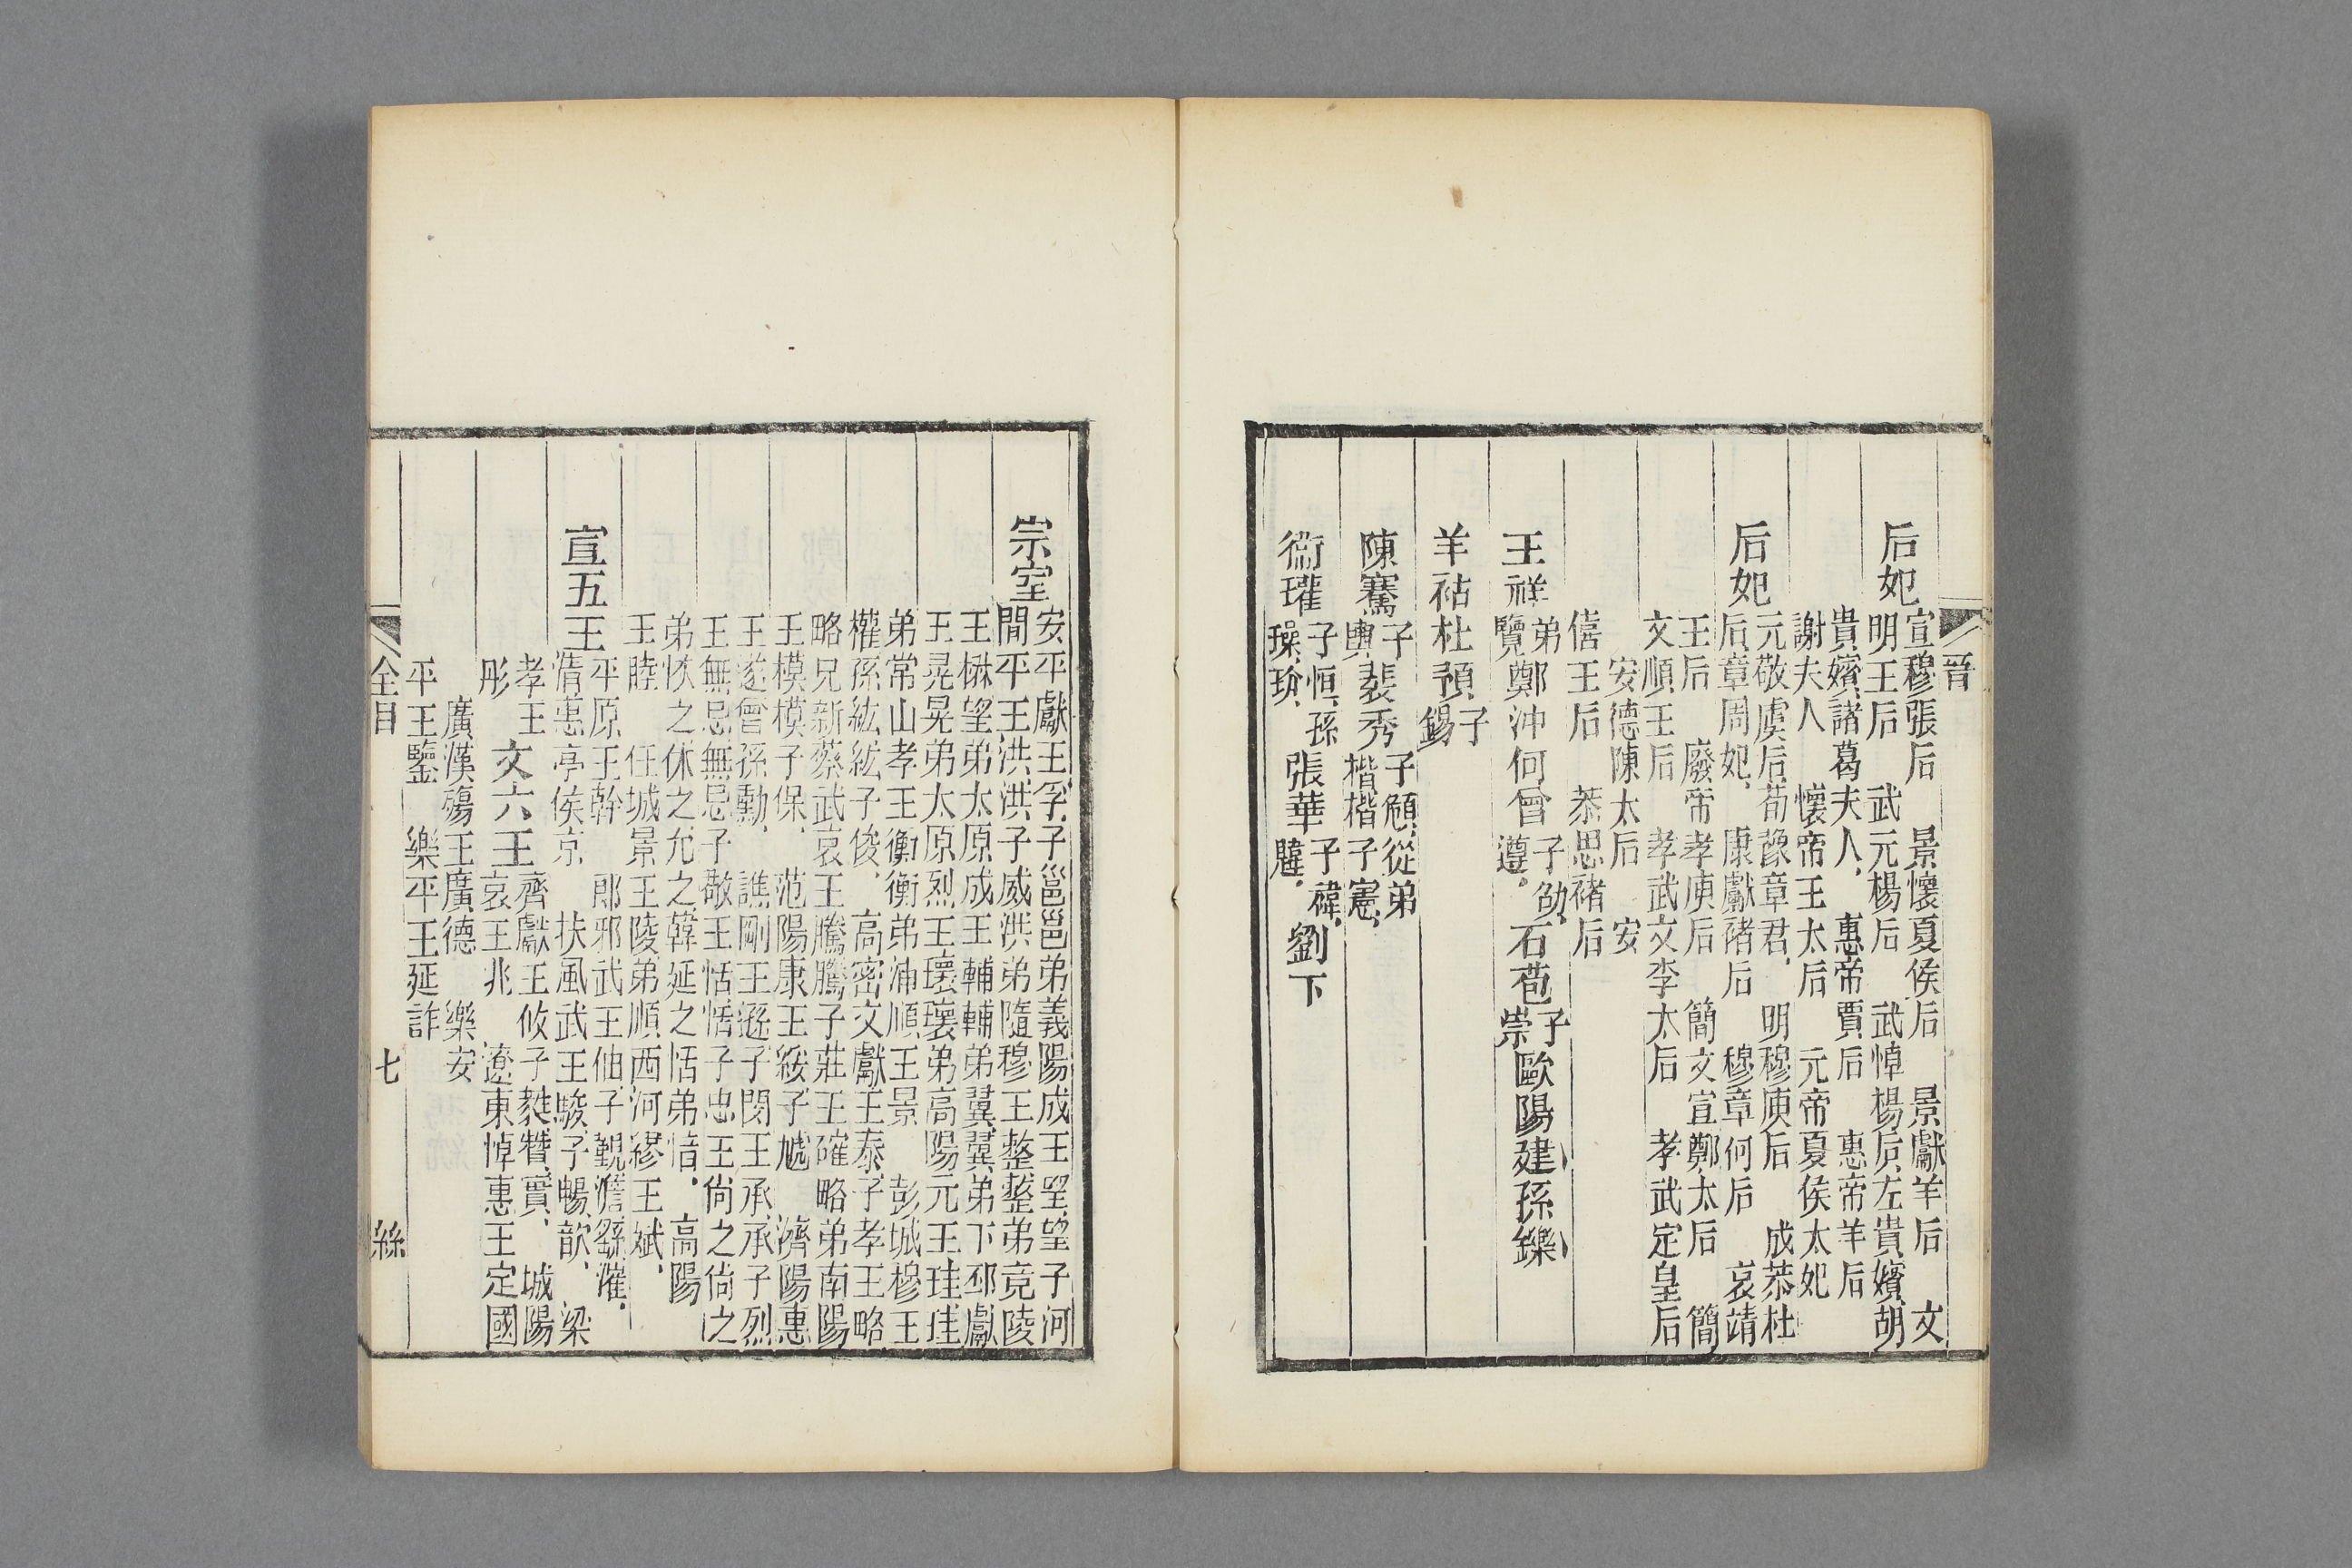 晉
后妃宣穆張后　景懷夏侯后　景獻羊后　文
明王后　武元楊后　武悼楊后左貴嬪胡
貴嬪諸葛夫人　惠帝賈后　惠帝羊后
謝夫人　懷帝王太后　元帝夏侯太妃
后妃元敬虞后荀豫章君　明穆庾后　成恭杜
后章周妃　康獻褚后　穆章何后　哀靖
王后　廢帝孝庾后　簡文宣鄭太后　簡
文順王后　孝武文李太后　孝武定皇后
安德陳太后　安
僖王后　恭思褚后
王祥弟覽鄭沖何曾子劭遵石苞子崇歐陽建孫鑠
羊祜杜預子錫
陳騫子輿裴秀子頠從弟楷楷子憲
衞瓘子恒孫璪玠張華子禕韙劉下
宗室安平獻王孚子邕邕弟義陽成王望望子河
間平王洪洪子威洪弟隨穆王整整弟竟陵
王楙望弟太原成王輔輔弟翼翼弟下邳獻
王晃晃弟太原烈王瓌瓌弟高陽元王珪珪
弟常山孝王衡衡弟沛順王景　彭城穆王
權孫紘紘子俊　高密文獻王泰子孝王略
略兄新蔡武哀王騰騰子莊王確略弟南陽
王模模子保　范陽康王綏子虓　濟陽惠
王遂曾孫勳　譙剛王遜子閔王承承子烈
王無忌無忌子敬王恬恬子忠王尚之尚之
弟恢之休之允之韓延之恬弟愔　高陽
王睦　任城景王陵弟順西河繆王斌
宣五王平原王幹　郎邪武王伷子覲澹繇漼
清惠亭侯京　扶風武王駿子暢歆　梁
孝王彤文六王齊獻王攸子蕤贊寔　城陽
哀王兆　遼東悼惠王定國
廣漢殤王廣德　樂安
平王鑒　樂平王延詐
全目　七　絲